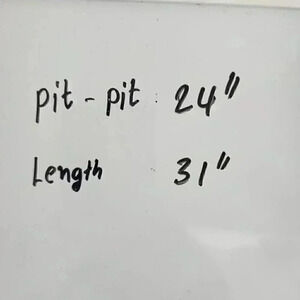 pit - pit : 24"
Length 31"